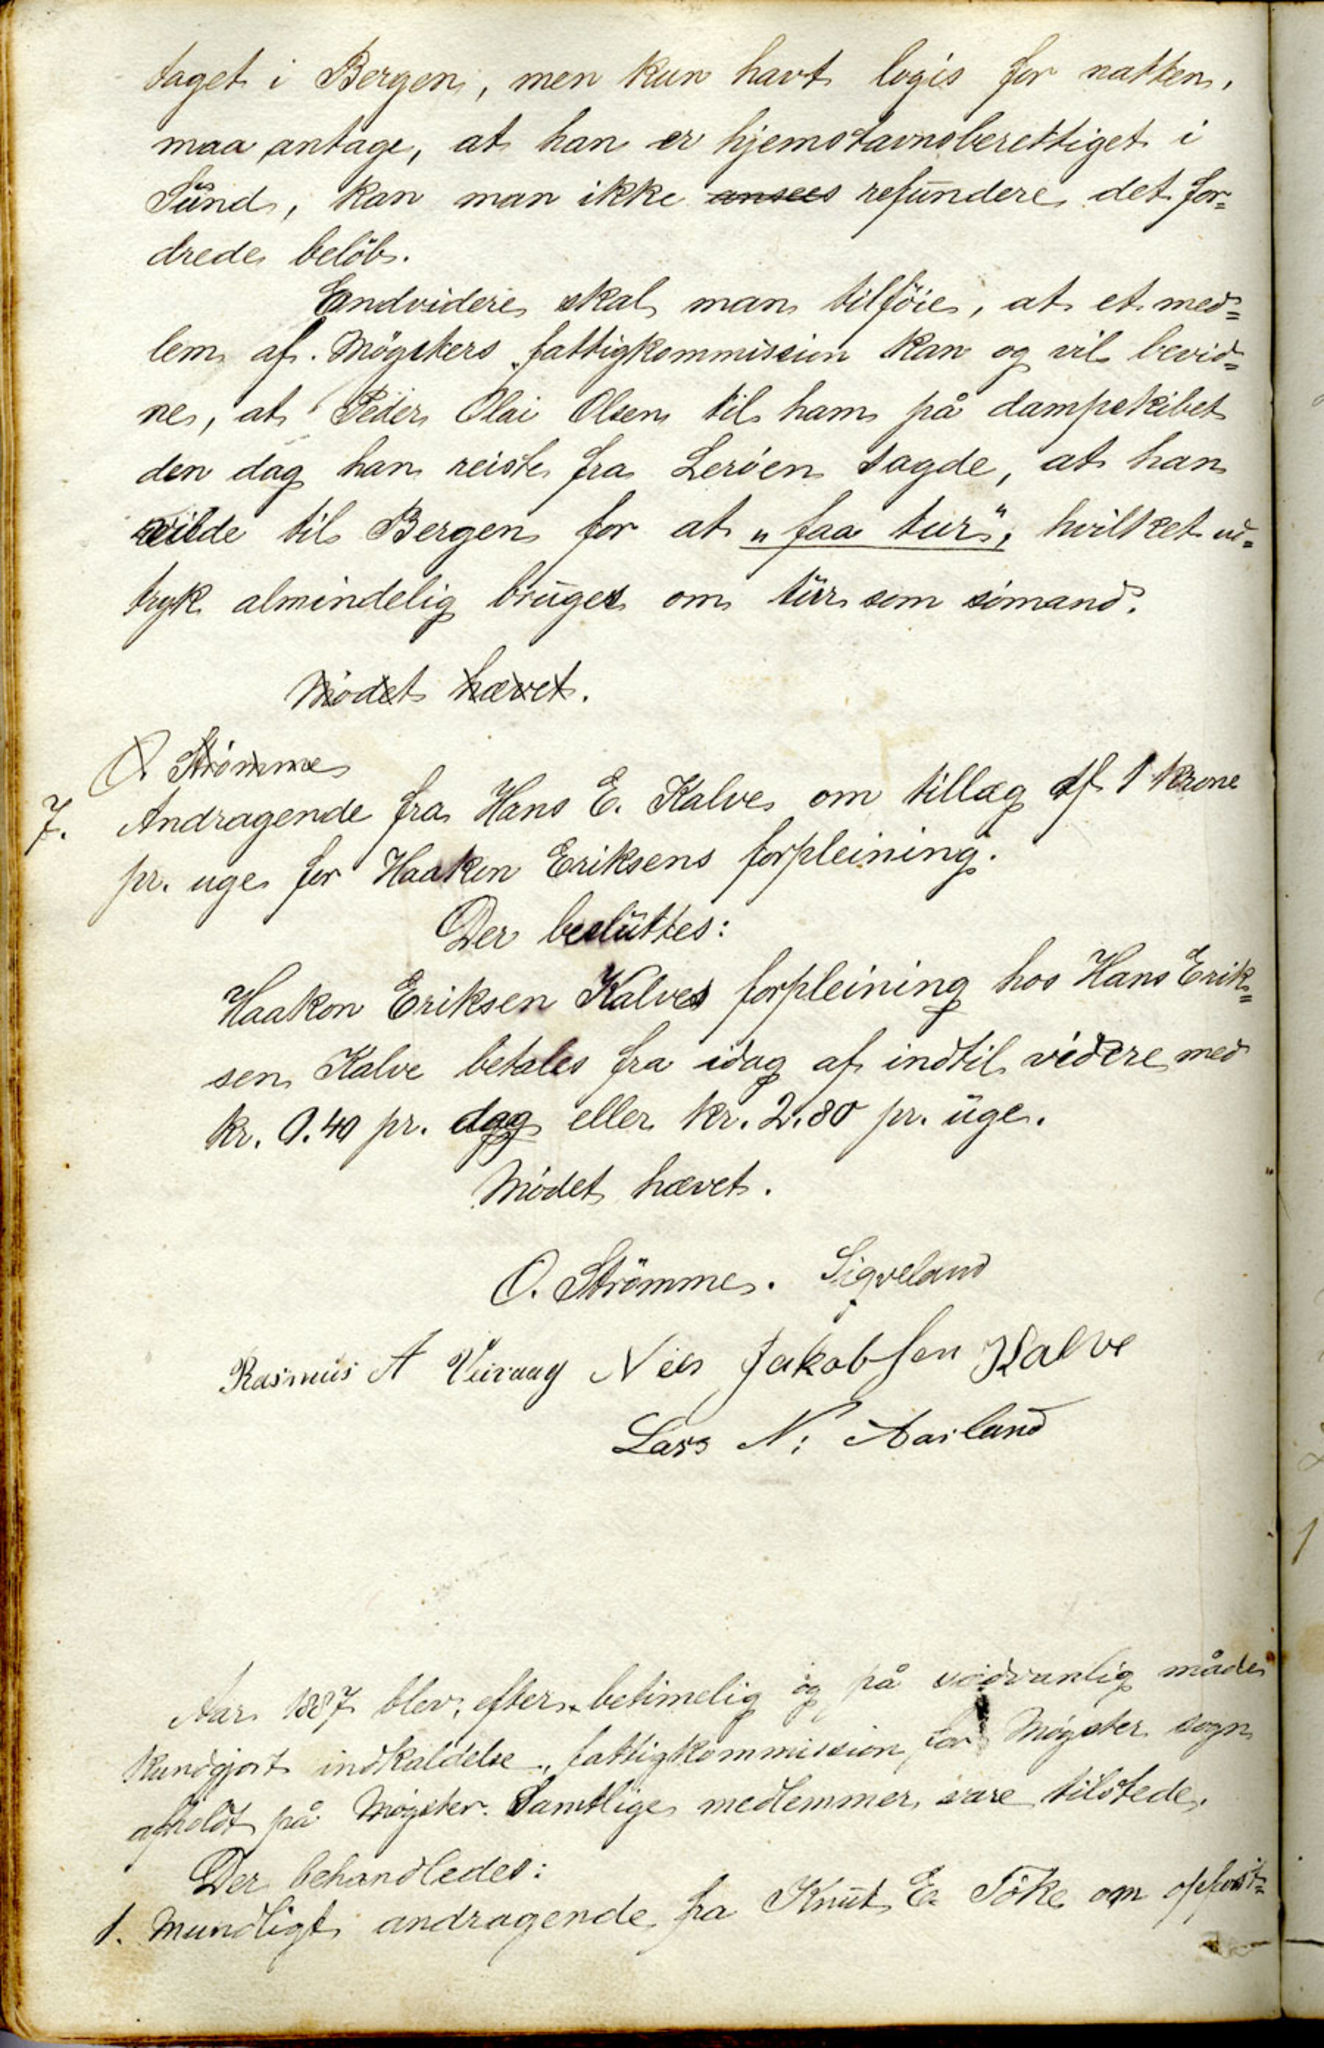 taget i Bergen, men kun havt logis for natten,
maa antage, at han er hjemstavnsberettiget i
Sund, kan man ikke ansees refundere det for=
drede beløb.
Endvidere skal man tilføie, at et med=
lem af Møgsters fattigkommission kan og vil bevid=
ne, at Peder Olai Olsen til ham på dampskibet
den dag han reiste fra Lerøen sagde, at han
vilde til Bergen for at „faa tur", hvilket ud=
tryk almindelig bruges om tur som sømand.
Mödet hævet.
O. Strömme
7. Andragende fra Hans E. Kalve om tillæg af 1 krone
pr. uge for Haakon Eriksens forpleining.
Der besluttes:
Haakon Eriksen Kalves forpleining hos Hans Erik=
sen Kalve betales fra idag af indtil videre med
kr. 0.40 pr. dag eller kr. 2.80 pr. uge.
Mödet hævet.
O. Strömme. Sigveland
Rasmus A Viivaag Nils Jakobsen Kalve
Lars N: Aarland
Aar 1887 blev, efter betimelig og på sædvanlig måde
kundgjort indkaldelse, fattigkommission for Møgster sogn
afholdt på Møgster. Samtlige medlemmer vare tilstede.
Der behandledes:
1. Mundligt andragende fra Knut E. Töke om opfost=